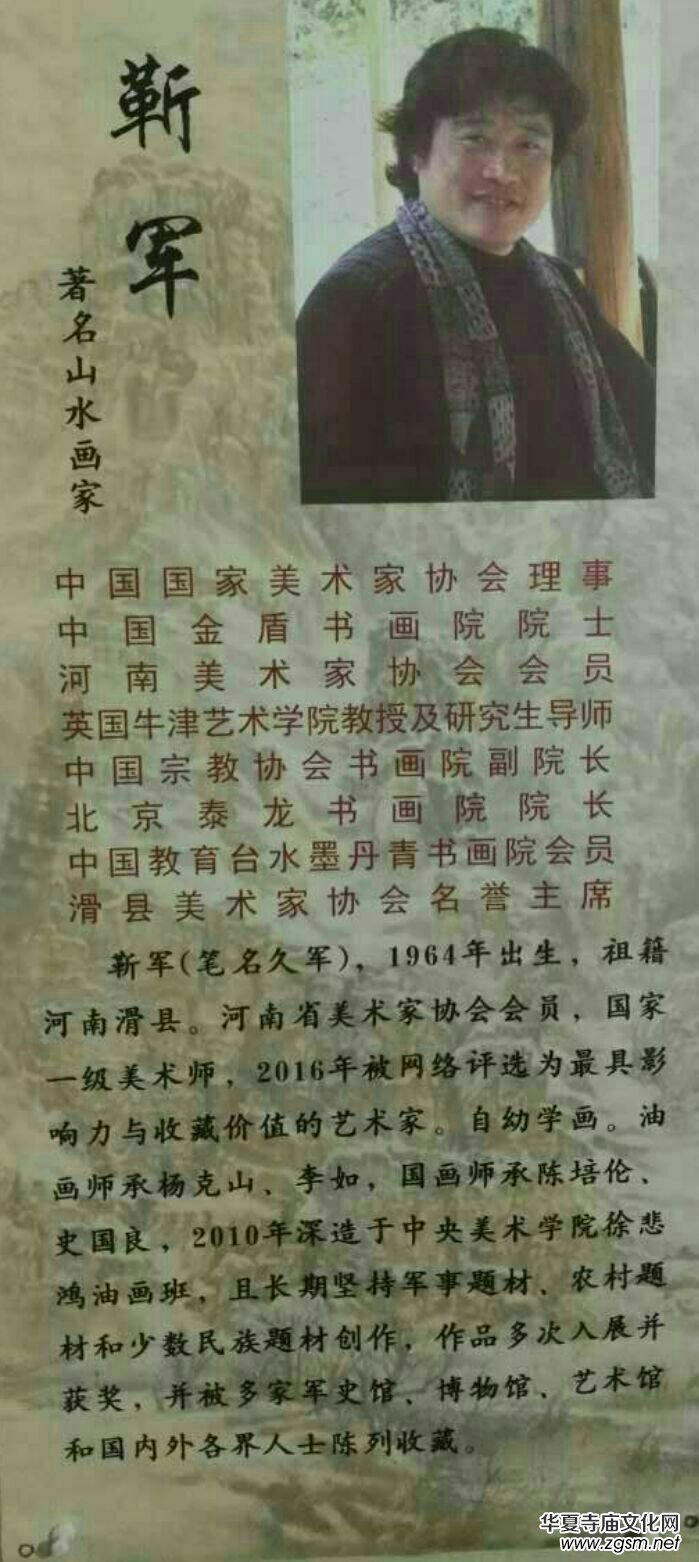 靳军
著名山水画家
中国国家美术家协会理事
中国金盾书画院院士
河南美术家协会会员
英国牛津艺术学院教授及研究生导师
中国宗教协会书画院副院长
北京泰龙书画院院长
中国教育台水墨丹青书画院会员
滑县美术家协会名誉主席
靳军(笔名久军)，1964年出生，祖籍
河南滑县。河南省美术家协会会员，国家
一级美术师，2016年被网络评选为最具影
响力与收藏价值的艺术家。自幼学画。油
画师承杨克山、李如，国画师承陈培伦、
史国良，2010年深造于中央美术学院徐悲
鸿油画班，且长期坚持军事题材、农村题
材和少数民族题材创作，作品多次入展并
获奖，并被多家军史馆、博物馆、艺术馆
和国内外各界人士陈列收藏。
华夏寺庙文化网
www.zgsm.net